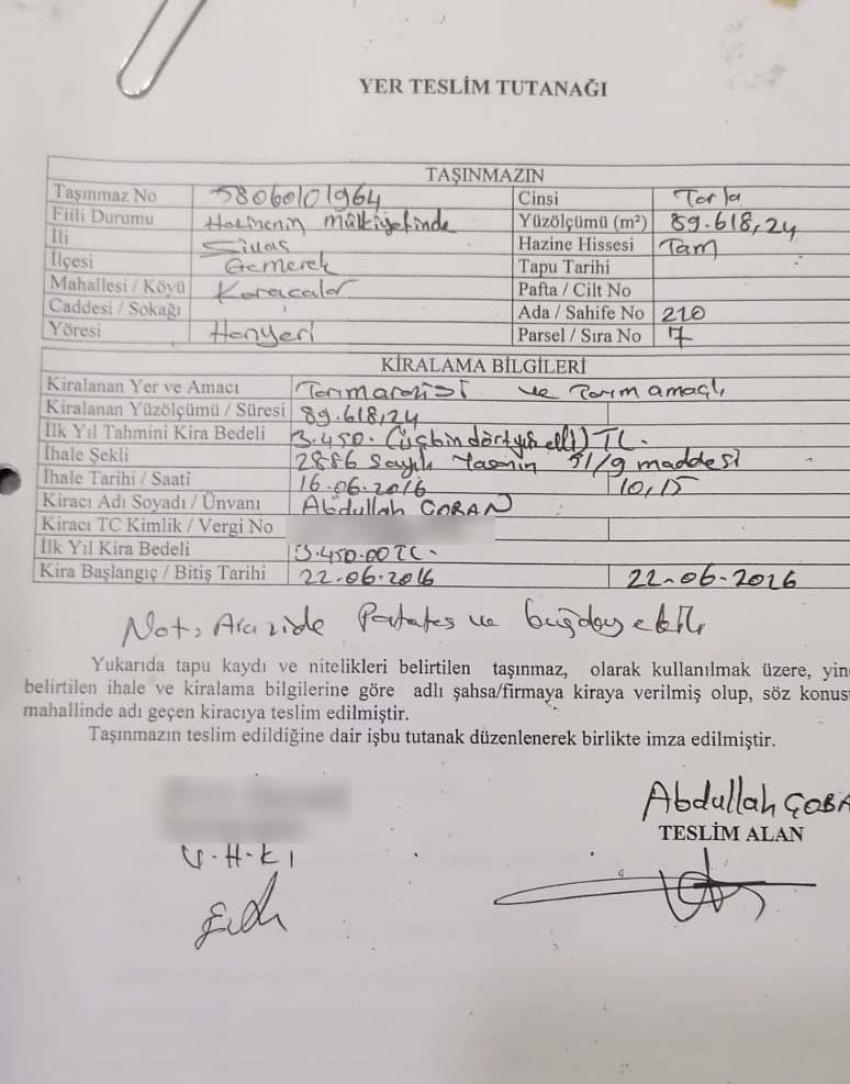 YER TESLİM TUTANAĞI
TAŞINMAZIN
Taşınmaz No 58060101964 Cinsi Tarla
Fiili Durumu Hazinenin mülkiyetinde Yüzölçümü (m²) 89.618,24
İli Sivas Hazine Hissesi Tam
İlçesi Gemerek Tapu Tarihi
Mahallesi / Köyü Karacalar Pafta / Cilt No
Caddesi / Sokağı Ada / Sahife No 210
Yöresi Hanyeri Parsel / Sıra No 7
KİRALAMA BİLGİLERİ
Kiralanan Yer ve Amacı Tarım arazisi ve Tarım amaçlı
Kiralanan Yüzölçümü / Süresi 89.618,24
İlk Yıl Tahmini Kira Bedeli 3.450. (üçbindörtyüzelli) TL.
İhale Şekli 2886 Sayılı Yasanın 51/g maddesi
İhale Tarihi / Saati 16.06.2016 10,15
Kiracı Adı Soyadı / Ünvanı Abdullah ÇOBAN
Kiracı TC Kimlik / Vergi No
İlk Yıl Kira Bedeli 3.450.00 TL.
Kira Başlangıç / Bitiş Tarihi 22.06.2016 22.06.2026
Not, Arazide Patates ve buğday ekili
Yukarıda tapu kaydı ve nitelikleri belirtilen taşınmaz, olarak kullanılmak üzere, yin
belirtilen ihale ve kiralama bilgilerine göre adlı şahsa/firmaya kiraya verilmiş olup, söz konus
mahallinde adı geçen kiracıya teslim edilmiştir.
Taşınmazın teslim edildiğine dair işbu tutanak düzenlenerek birlikte imza edilmiştir.
Abdullah ÇOBA
TESLİM ALAN
V.H.Kİ